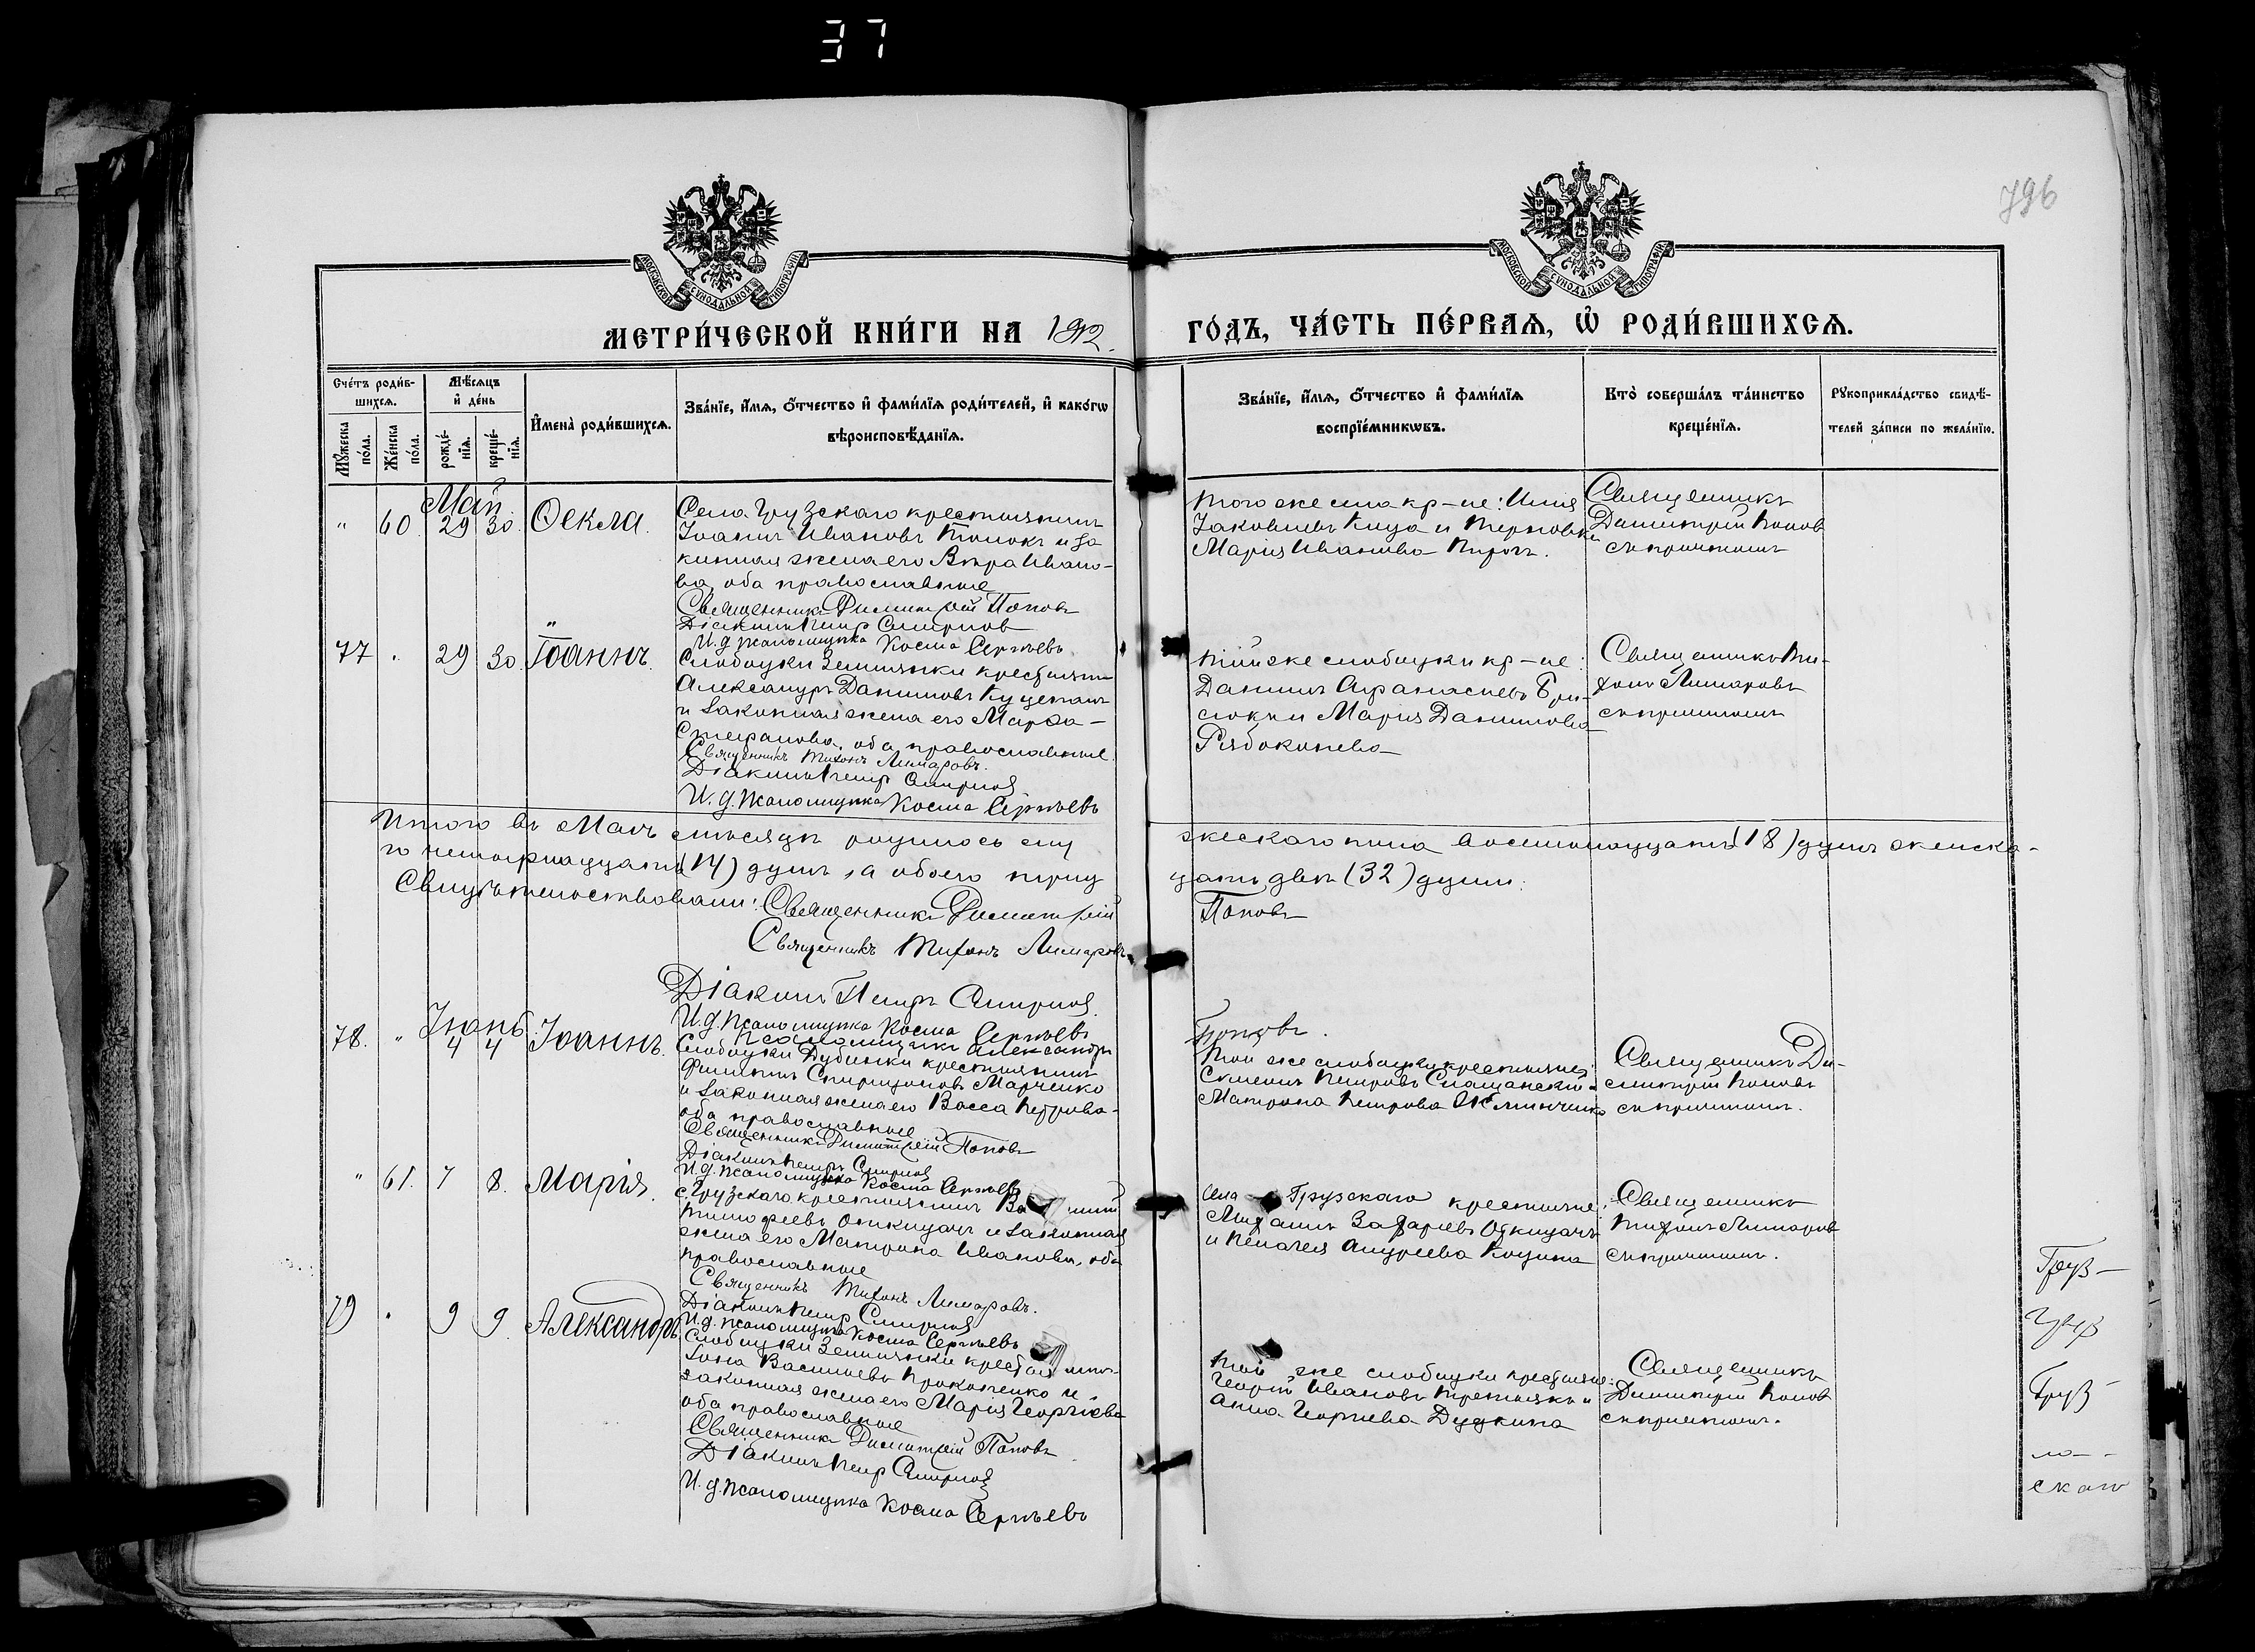 37
796
МОСКОВСКОЙ СУНОДАЛЬНОЙ ТИПОГРАФІИ
МОСКОВСКОЙ СУНОДАЛЬНОЙ ТИПОГРАФІИ
МЕТРИ́ЧЕСКОЙ КНИ́ГИ НА 1912
ГО́ДЪ, ЧА́СТЬ ПЕ́РВАѦ, Ѽ РОДИ́ВШИХСѦ.
Сче́тъ роди́в-
шихсѧ.
Мꙋ́жеска по́ла.
Же́нска по́ла.
Мѣ́сѧцъ
и҆ де́нь
рожде́-
нїѧ.
креще́-
нїѧ.
И҆мена̀ роди́вшихсѧ.
Зва́нїе, и҆́мѧ, ѻ҆́тчество и҆ фами́лїѧ роди́телей, и҆ како́гѡ
вѣроисповѣ́данїѧ.
Зва́нїе, и҆́мѧ, ѻ҆́тчество и҆ фами́лїѧ
воспрїе́мникѡвъ.
Кто̀ соверша́лъ та́инство
креще́нїѧ.
Рꙋкоприкла́дство свидѣ́-
телей за́писи по жела́нїю.
Май
" 60. 29 30. Ѳекла.
Села Грузскаго крестьянинъ
Іоаннъ Ивановъ и за
конная жена его Вѣра Ивано-
ва, оба православные
Священникъ Димитрій Поповъ
Діаконъ Петръ Смирнов
И. д. псаломщика Косма Сергѣевъ
Того же села кр-не: Илія
Іаковлевъ и
Марія Иванова
Священникъ
Димитрій Попов
съ причтомъ
77 " 29 30. Іоаннъ.
Слободки Землянки крестьянин
Александръ Даниловъ
и законная жена его Марѳа
Стефанова, оба православные.
Священникъ Тихонъ Лимаровъ.
Діаконъ Петръ Смирнов
И. д. псаломщика Косма Сергѣевъ
Той же слободки кр-не:
Даніилъ Аѳанасіевъ
и Марія Данилова
Рябоконева
Священникъ Ти-
хонъ Лимаровъ
съ причтомъ
Итого въ Маѣ мѣсяцѣ родилось му
жескаго пола восемнадцать (18) душъ женска-
го четырнадцать (14) душъ, а обоего трид
цать двѣ (32) души.
Свидѣтельствовали: Священникъ Димитрій
Поповъ
Священникъ Тихонъ Лимаровъ
Діаконъ Петръ Смирнов.
И. д. псаломщика Косма Сергѣевъ
Псаломщикъ Александръ
Поповъ.
Іюнь
78. " 4 4 Іоаннъ.
Слободки Дубинки крестьянинъ
Филиппъ Спиридоновъ Марченко
и законная жена его Васса Петрова
оба православные
Священникъ Димитрій Поповъ
Діаконъ Петръ Смирнов
И. д. псаломщика Косма Сергѣевъ
Той же слободки крестьяне:
Симеонъ Петровъ
Матрона Петрова
Священникъ Ди-
митрій Поповъ
съ причтомъ.
" 61. 7 8. Марія.
с. Грузскаго крестьянинъ
Тимоѳеевъ Откидачъ и законная
жена его Матрона Иванова, оба
православные
Священникъ Тихонъ Лимаровъ.
Діаконъ Петръ Смирнов
И. д. псаломщика Косма Сергѣевъ
села Грузскаго крестьяне:
Михаилъ Захаріевъ Откидачъ
и Пелагея Андреева
Священникъ
Тихонъ Лимаров
съ причтомъ.
79 " 9 9. Александръ.
Слободки Землянки
Іона Васильевъ Прокопенко и
законная жена его Марія Георгіева
оба православные
Священникъ Димитрій Поповъ
Діаконъ Петръ Смирнов
И. д. псаломщика Косма Сергѣевъ
Той же слободки крестьяне:
Георгій Ивановъ Третьякъ и
Анна Георгіева Дудкина
Священникъ
Димитрій Попов
съ причтомъ.
Груз-
Груз
скаго